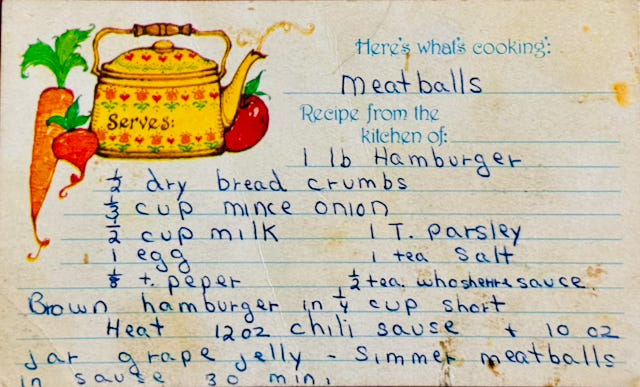 Here's what's cooking:
Meatballs
Serves:
Recipe from the
kitchen of:
1 lb Hamburger
1/2 dry bread crumbs
1/3 cup mince onion
1/2 cup milk 1 T. parsley
1 egg 1 tea salt
1/8 t. peper 1/2 tea. whoshehre sauce.
Brown hamburger in 1/4 cup short
Heat 12 oz chili sause + 10 oz
jar grape jelly - Simmer meatballs
in sause 30 min.